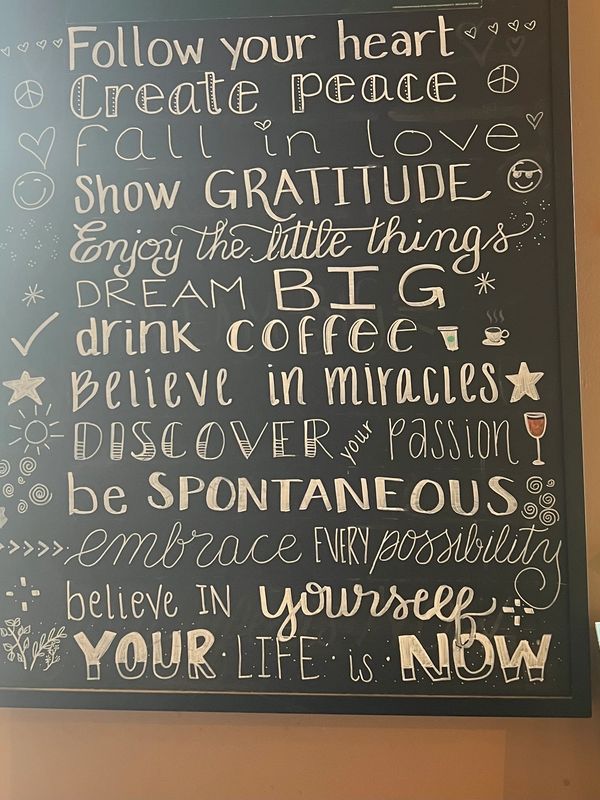 Follow your heart
Create peace
fall in love
Show GRATITUDE
Enjoy the little things
DREAM BIG
drink coffee
Believe in miracles
DISCOVER your passion
be SPONTANEOUS
embrace EVERY possibility
believe IN yourself
YOUR · LIFE · is · NOW